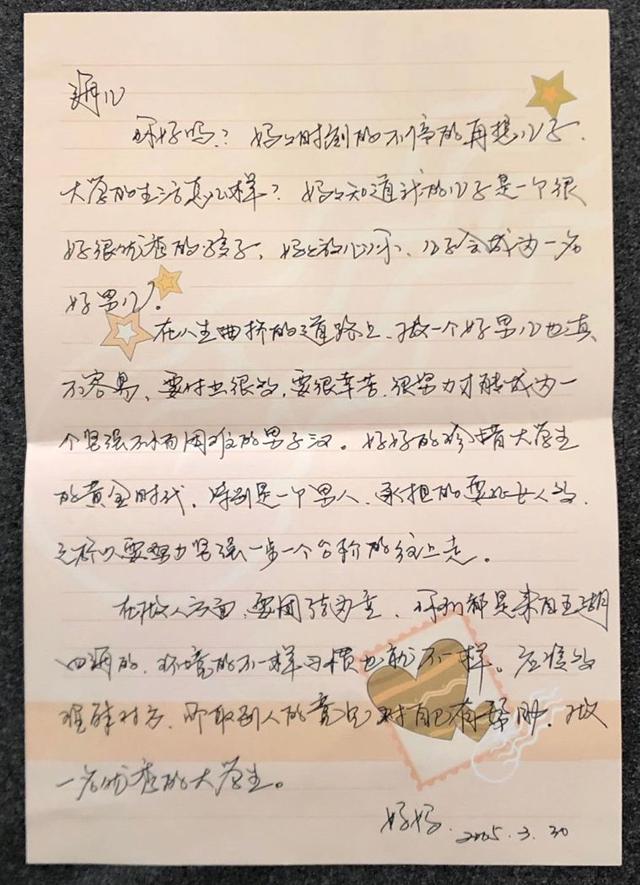 你好吗？妈妈时刻的不停的再想儿子.
大学的生活怎么样？妈妈知道我的儿子是一个很
好很优秀的孩子，妈妈放心不、儿子会成为一名
好男儿。
在人生曲折的道路上、做一个好男儿也真
不容易、要付出很多，要很辛苦、很努力才能成为一
个坚强不怕困难的男子汉。好好的珍惜大学生
的黄金时代、特别是一个男人、承担的要比女人多、
所以要努力坚强一步一个台阶的往上走。
在做人方面，要团结为重、你们都是来自五湖
四海的、环境的不一样习惯也就不一样。应该多
理解对方、听取别人的意见对自己有帮助、做
一名优秀的大学生。
妈妈.
2005.3.30